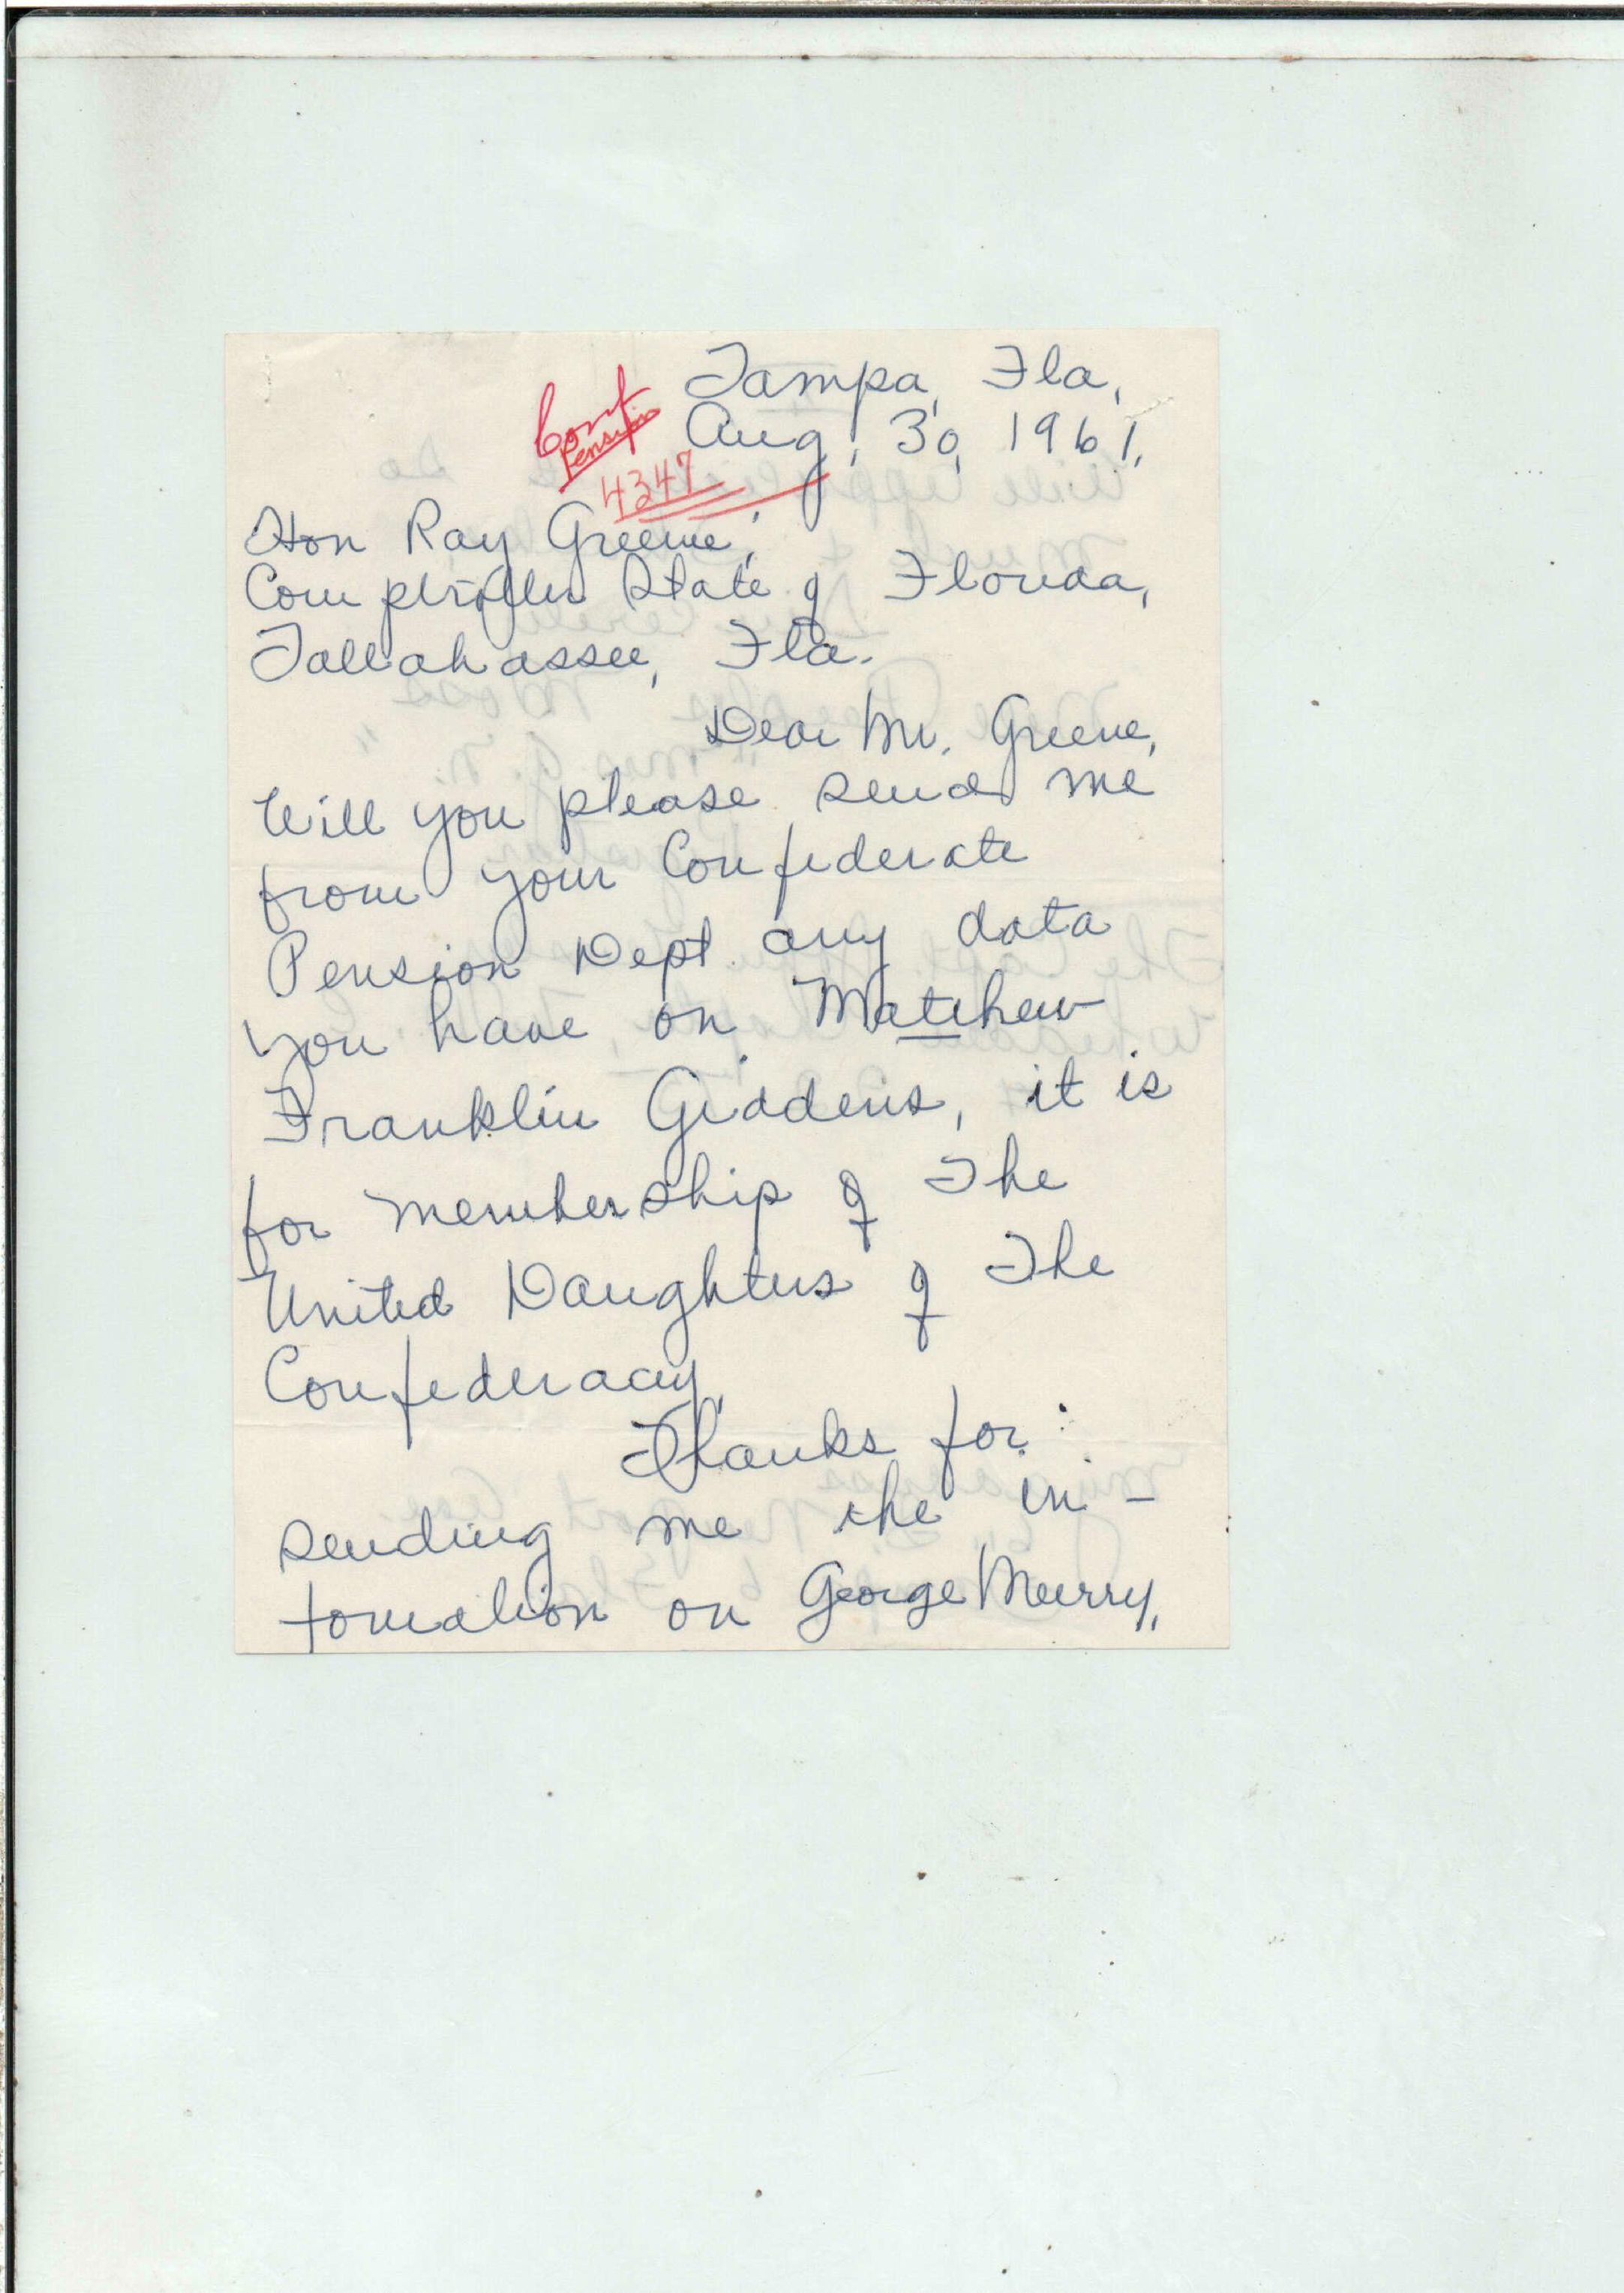 Tampa, Fla,
Conf
Pension
Aug, 30, 1961,
4347
Hon Ray Greene,
Comptroller State of Florida,
Tallahassee, Fla.
Dear Mr. Greene,
Will you please send me
from your Confederate
Pension Dept. any data
you have on Matthew
Franklin Giddens, it is
for membership of The
United Daughters of The
Confederacy,
Thanks for
sending me the in-
formation on George Murry,